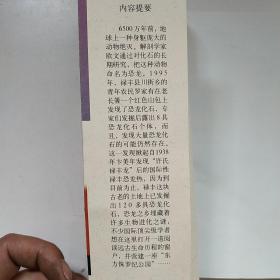 内容提要
6500万年前，地
球上一种身躯庞大的
动物绝灭，解剖学家
欧文通过对化石的长
期研究，把这种动物
命名为恐龙。1995
年，禄丰县川街乡的
青年农民罗家有在老
长箐一个红色山包上
发现了恐龙化石，专
家们发掘后露出8具
恐龙化石个体，而
且，发现大量恐龙化
石的可能仍然存在。
这一发现掀起自1938
年卞美年发现“许氏
禄丰龙”后的国际性
禄丰恐龙热，因为到
目前为止，禄丰这块
古老的土地上已发掘
出120多具恐龙化
石，恐龙之乡蕴藏着
许多生物进化之谜，
不少国际顶尖级学者
想在这里打开一道阅
读远古生命历程的窗
户，并营建一座“东
方侏罗纪公园”……